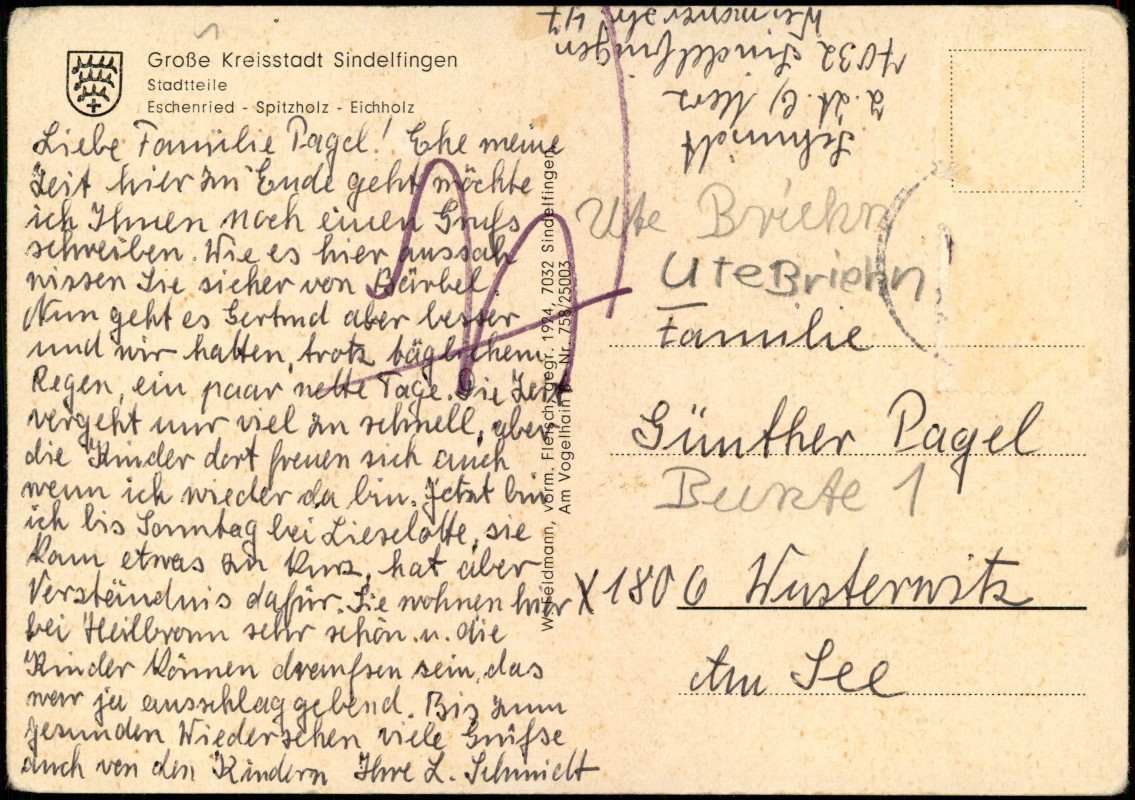 Große Kreisstadt Sindelfingen
Stadtteile
Eschenried - Spitzholz - Eichholz
Liebe Familie Pagel! Ehe meine
Zeit hier zu Ende geht möchte
ich Ihnen noch einen Gruß
schreiben. Wie es hier aussah
wissen Sie sicher von Bärbel.
Nun geht es Gertrud aber besser
und wir hatten, trotz täglichem
Regen, ein paar nette Tage. Die Zeit
vergeht nur viel zu schnell, aber
die Kinder dort freuen sich auch
wenn ich wieder da bin. Jetzt bin
ich bis Sonntag bei Lieselotte, sie
kam etwas zu kurz, hat aber
Verständnis dafür. Sie wohnen hier
bei Heilbronn sehr schön u. die
Kinder können draußen sein, das
war ja ausschlaggebend. Bis zum
gesunden Wiedersehen viele Grüße
auch von den Kindern Ihre L. Schmidt
W. Feldmann, vorm. Fleisch, gegr. 1924, 7032 Sindelfingen,
Am Vogelhain Nr. 758/25003
Schmidt
z. Zt. b/ Merz
7032 Sindelfingen
47
Ute Briehn
Ute Briehn
Familie
Günther Pagel
1
X 1806 Wusterwitz
Am See